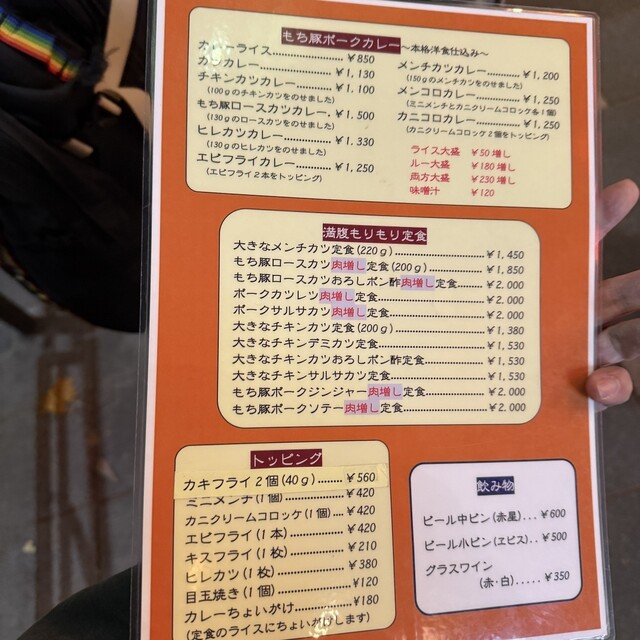 もち豚ポークカレー～本格洋食仕込み～
カレーライス...................¥850
カツカレー....................¥1,130
チキンカツカレー..............¥1,100
(100gのチキンカツをのせました)
もち豚ロースカツカレー.¥1,500
(130gのロースカツをのせました)
ヒレカツカレー................¥1,330
(130gのヒレカツをのせました)
エビフライカレー..............¥1,250
(エビフライ2本をトッピング)
メンチカツカレー..............¥1,200
(150gのメンチカツをのせました)
メンコロカレー................¥1,250
(ミニメンチとカニクリームコロッケ各1個)
カニコロカレー................¥1,250
(カニクリームコロッケ2個をトッピング)
ライス大盛 ¥50増し
ルー大盛 ¥180増し
両方大盛 ¥230増し
味噌汁 ¥120
満腹もりもり定食
大きなメンチカツ定食(220g)..............................¥1,450
もち豚ロースカツ肉増し定食(200g)....................¥1,850
もち豚ロースカツおろしポン酢肉増し定食.......¥2.000
ポークカツレツ肉増し定食................................¥2.000
ポークサルサカツ肉増し定食............................¥2.000
大きなチキンカツ定食(200g)............................¥1,380
大きなチキンデミカツ定食................................¥1,530
大きなチキンカツおろしポン酢定食..................¥1,530
大きなチキンサルサカツ定食............................¥1,530
もち豚ポークジンジャー肉増し定食..................¥2.000
もち豚ポークソテー肉増し定食........................¥2.000
トッピング
カキフライ2個(40g)........¥560
ミニメンチ(1個).............¥420
カニクリームコロッケ(1個)....¥420
エビフライ(1本)..............¥420
キスフライ(1枚)..............¥210
ヒレカツ(1枚).................¥380
目玉焼き(1個)................¥120
カレーちょいがけ..............¥180
(定食のライスにちょいがけします)
飲み物
ビール中ビン(赤星)...¥600
ビール小ビン(ヱビス)..¥500
グラスワイン
(赤・白).....¥350